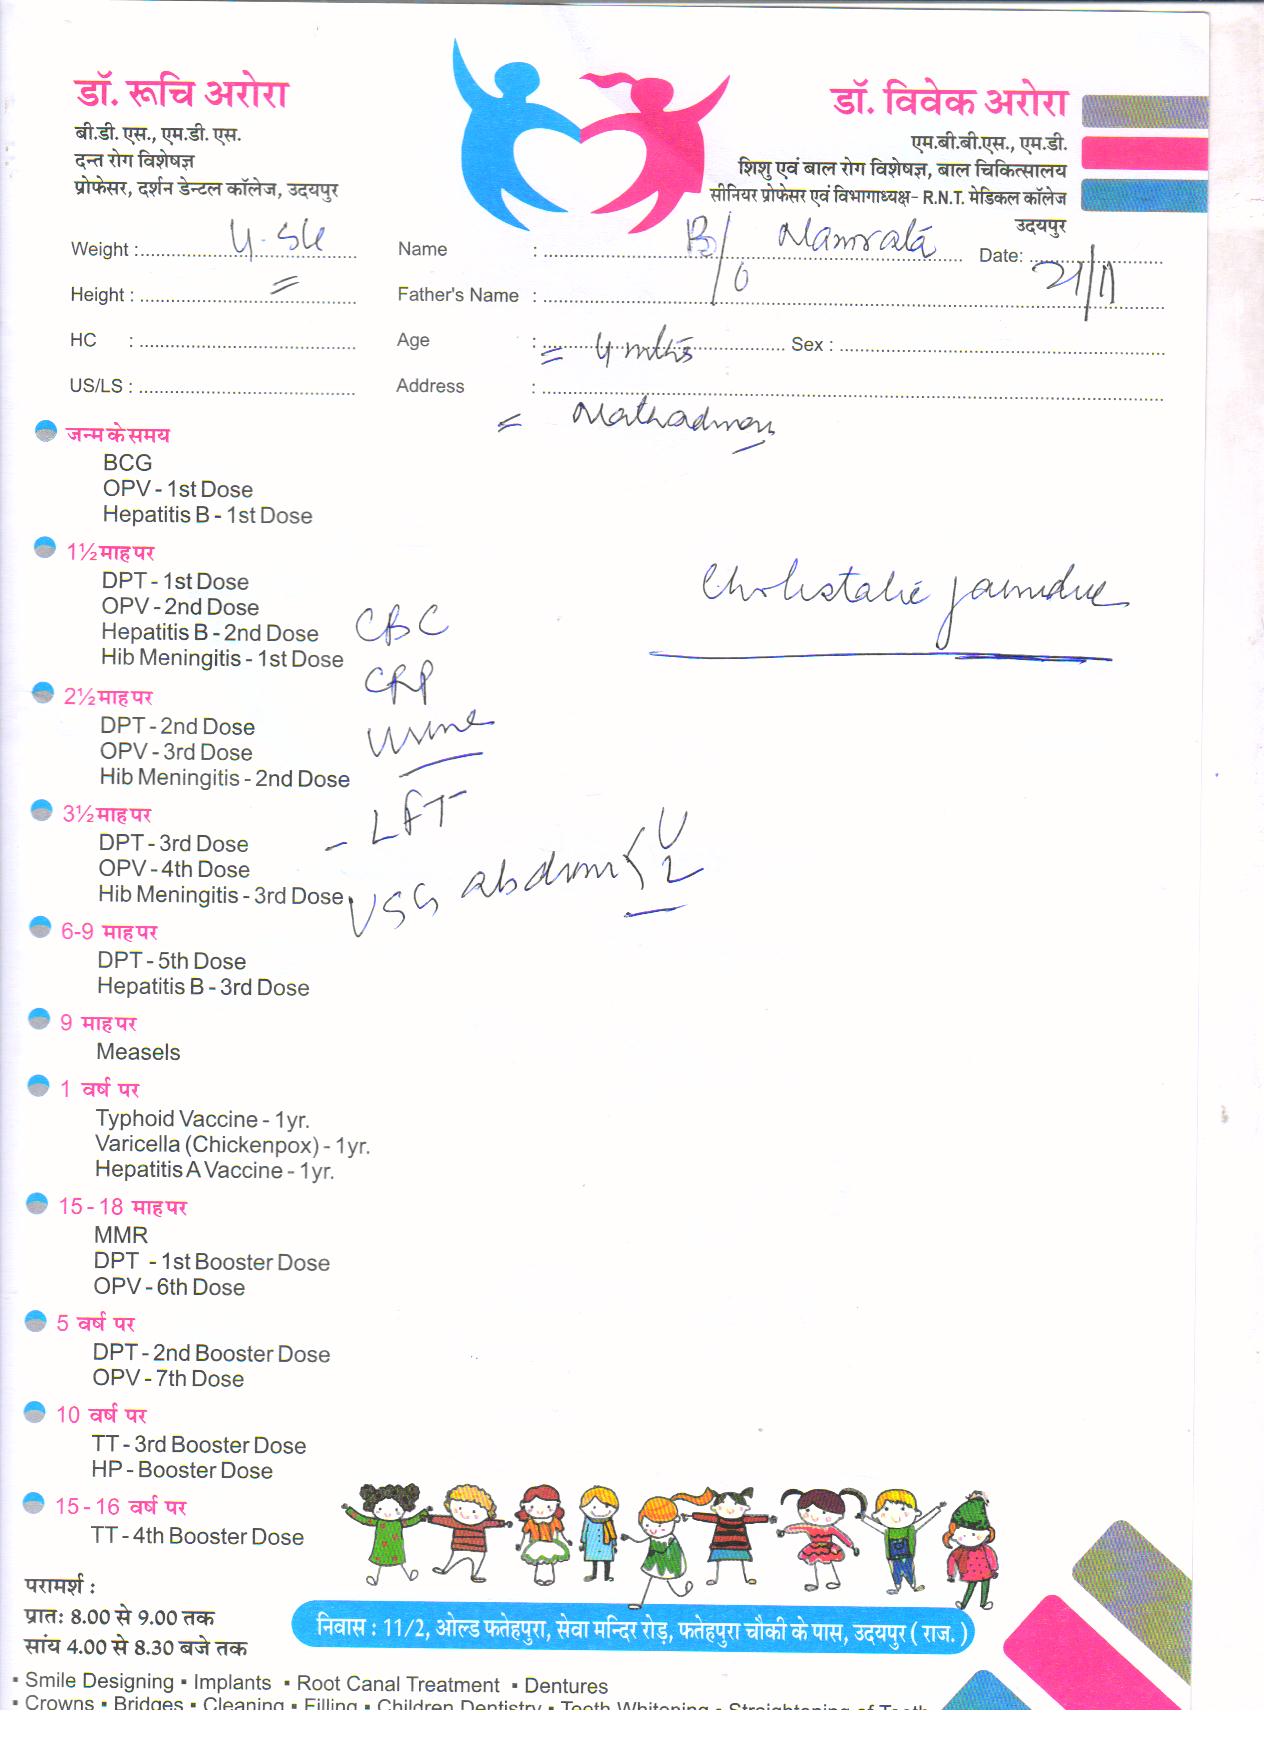 डॉ. रूचि अरोरा
बी.डी. एस., एम.डी. एस.
दन्त रोग विशेषज्ञ
प्रोफेसर, दर्शन डेन्टल कॉलेज, उदयपुर
डॉ. विवेक अरोरा
एम.बी.बी.एस., एम.डी.
शिशु एवं बाल रोग विशेषज्ञ, बाल चिकित्सालय
सीनियर प्रोफेसर एवं विभागाध्यक्ष- R.N.T. मेडिकल कॉलेज
उदयपुर
Weight : Name : B/o Namrata Date: 21/11
Height : Father's Name :
HC : Age : 4 mths Sex :
US/LS : Address :
जन्म के समय
BCG
OPV - 1st Dose
Hepatitis B - 1st Dose
1½ माह पर
DPT - 1st Dose
OPV - 2nd Dose
Hepatitis B - 2nd Dose
Hib Meningitis - 1st Dose
Cholestatic jaundice
CBC
CRP
Urine
- LFT
USG abdomen
2½ माह पर
DPT - 2nd Dose
OPV - 3rd Dose
Hib Meningitis - 2nd Dose
3½ माह पर
DPT - 3rd Dose
OPV - 4th Dose
Hib Meningitis - 3rd Dose
6-9 माह पर
DPT - 5th Dose
Hepatitis B - 3rd Dose
9 माह पर
Measels
1 वर्ष पर
Typhoid Vaccine - 1yr.
Varicella (Chickenpox) - 1yr.
Hepatitis A Vaccine - 1yr.
15 - 18 माह पर
MMR
DPT - 1st Booster Dose
OPV - 6th Dose
5 वर्ष पर
DPT - 2nd Booster Dose
OPV - 7th Dose
10 वर्ष पर
TT - 3rd Booster Dose
HP - Booster Dose
15 - 16 वर्ष पर
TT - 4th Booster Dose
परामर्श :
प्रातः 8.00 से 9.00 तक
सांय 4.00 से 8.30 बजे तक
निवास : 11/2, ओल्ड फतेहपुरा, सेवा मन्दिर रोड़, फतेहपुरा चौकी के पास, उदयपुर ( राज. )
▪ Smile Designing ▪ Implants ▪ Root Canal Treatment ▪ Dentures
▪ Crowns ▪ Bridges ▪ Cleaning ▪ Filling ▪ Children Dentistry ▪ Teeth Whitening ▪ Straightening of Teeth